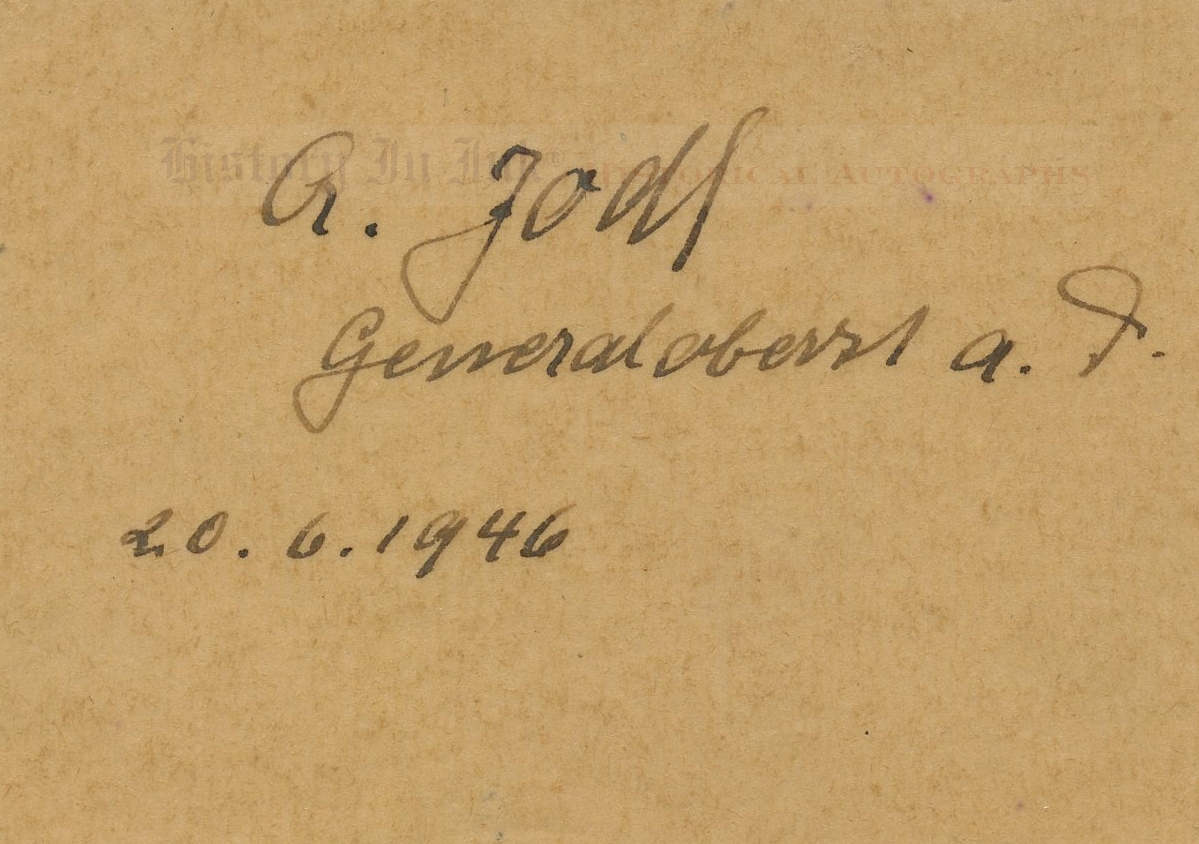 History In Ink® HISTORICAL AUTOGRAPHS
A. Jodl
Generaloberst a. D.
20. 6. 1946